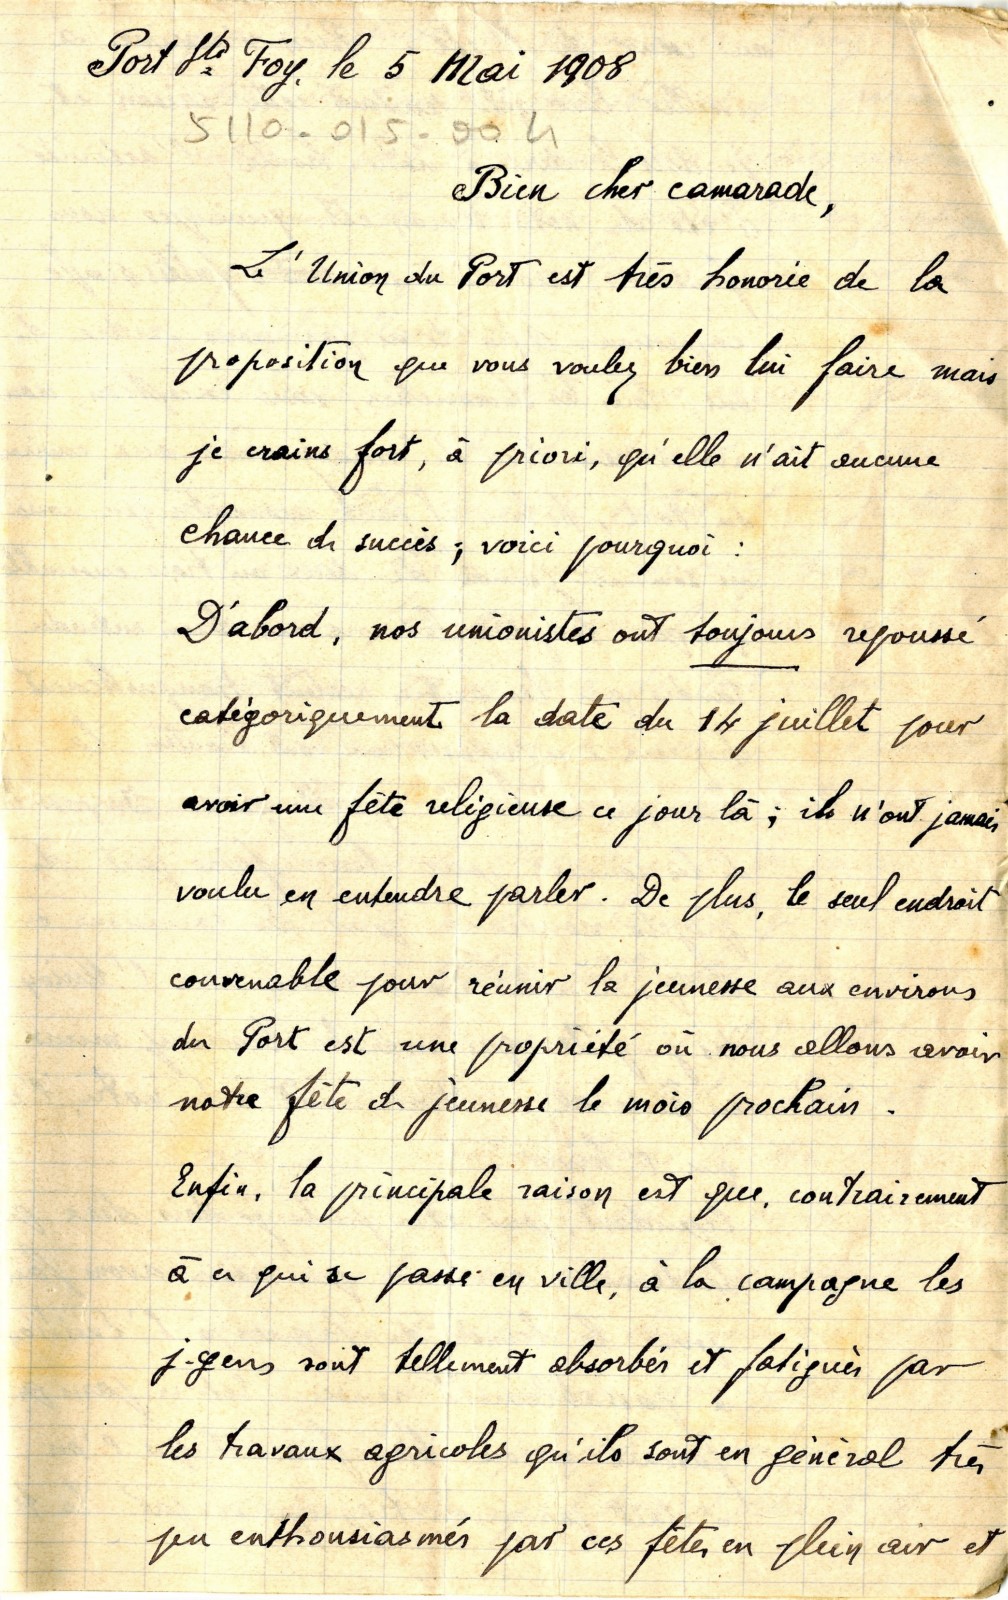 Port Ste Foy, le 5 Mai 1908
5110-015-004
Bien cher camarade,
L'Union du Port est très honorée de la
proposition que vous voulez bien lui faire mais
je crains fort, à priori, qu'elle n'ait aucune
chance de succès ; voici pourquoi :
D'abord, nos unionistes ont toujours repoussé
catégoriquement la date du 14 juillet pour
avoir une fête religieuse ce jour là ; ils n'ont jamais
voulu en entendre parler. De plus, le seul endroit
convenable pour réunir la jeunesse aux environs
du Port est une propriété où nous allons avoir
notre fête de jeunesse le mois prochain.
Enfin, la principale raison est que, contrairement
à ce qui se passe en ville, à la campagne les
j-gens sont tellement absorbés et fatigués par
les travaux agricoles qu'ils sont en général très
peu enthousiasmés par ces fêtes en plein air et